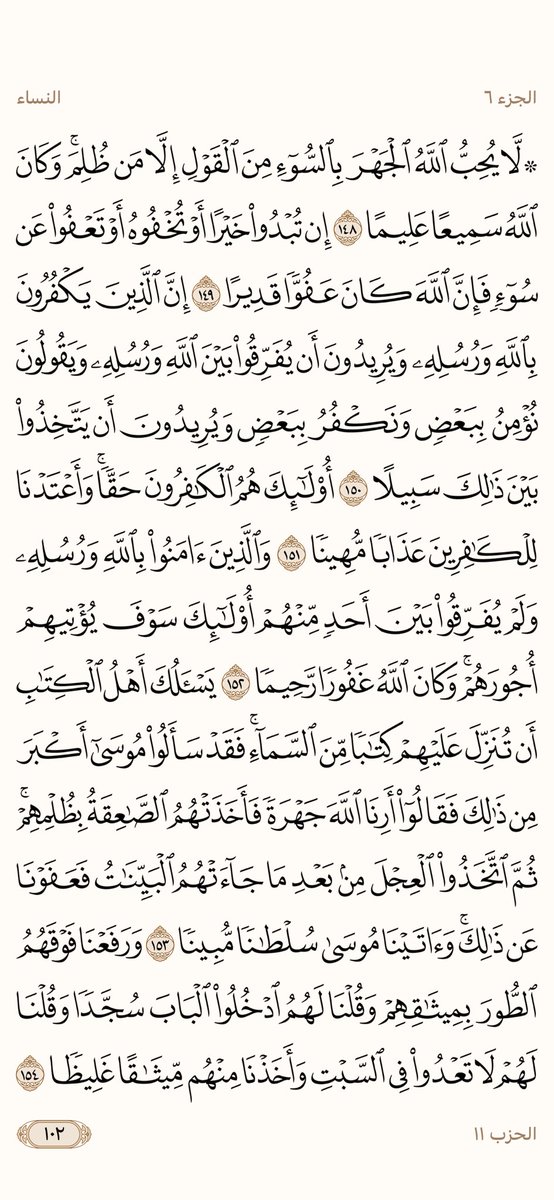 الجزء ٦
النساء
۞ لَّا يُحِبُّ ٱللَّهُ ٱلۡجَهۡرَ بِٱلسُّوٓءِ مِنَ ٱلۡقَوۡلِ إِلَّا مَن ظُلِمَۚ وَكَانَ
ٱللَّهُ سَمِيعًا عَلِيمًا ١٤٨ إِن تُبۡدُواْ خَيۡرًا أَوۡ تُخۡفُوهُ أَوۡ تَعۡفُواْ عَن
سُوٓءٖ فَإِنَّ ٱللَّهَ كَانَ عَفُوّٗا قَدِيرًا ١٤٩ إِنَّ ٱلَّذِينَ يَكۡفُرُونَ
بِٱللَّهِ وَرُسُلِهِۦ وَيُرِيدُونَ أَن يُفَرِّقُواْ بَيۡنَ ٱللَّهِ وَرُسُلِهِۦ وَيَقُولُونَ
نُؤۡمِنُ بِبَعۡضٖ وَنَكۡفُرُ بِبَعۡضٖ وَيُرِيدُونَ أَن يَتَّخِذُواْ
بَيۡنَ ذَٰلِكَ سَبِيلًا ١٥٠ أُوْلَٰٓئِكَ هُمُ ٱلۡكَٰفِرُونَ حَقّٗاۚ وَأَعۡتَدۡنَا
لِلۡكَٰفِرِينَ عَذَابٗا مُّهِينٗا ١٥١ وَٱلَّذِينَ ءَامَنُواْ بِٱللَّهِ وَرُسُلِهِۦ
وَلَمۡ يُفَرِّقُواْ بَيۡنَ أَحَدٖ مِّنۡهُمۡ أُوْلَٰٓئِكَ سَوۡفَ يُؤۡتِيهِمۡ
أُجُورَهُمۡۚ وَكَانَ ٱللَّهُ غَفُورٗا رَّحِيمٗا ١٥٢ يَسۡـَٔلُكَ أَهۡلُ ٱلۡكِتَٰبِ
أَن تُنَزِّلَ عَلَيۡهِمۡ كِتَٰبٗا مِّنَ ٱلسَّمَآءِۚ فَقَدۡ سَأَلُواْ مُوسَىٰٓ أَكۡبَرَ
مِن ذَٰلِكَ فَقَالُوٓاْ أَرِنَا ٱللَّهَ جَهۡرَةٗ فَأَخَذَتۡهُمُ ٱلصَّٰعِقَةُ بِظُلۡمِهِمۡۚ
ثُمَّ ٱتَّخَذُواْ ٱلۡعِجۡلَ مِنۢ بَعۡدِ مَا جَآءَتۡهُمُ ٱلۡبَيِّنَٰتُ فَعَفَوۡنَا
عَن ذَٰلِكَۚ وَءَاتَيۡنَا مُوسَىٰ سُلۡطَٰنٗا مُّبِينٗا ١٥٣ وَرَفَعۡنَا فَوۡقَهُمُ
ٱلطُّورَ بِمِيثَٰقِهِمۡ وَقُلۡنَا لَهُمُ ٱدۡخُلُواْ ٱلۡبَابَ سُجَّدٗا وَقُلۡنَا
لَهُمۡ لَا تَعۡدُواْ فِي ٱلسَّبۡتِ وَأَخَذۡنَا مِنۡهُم مِّيثَٰقًا غَلِيظٗا ١٥٤
الحزب ١١
١٠٢